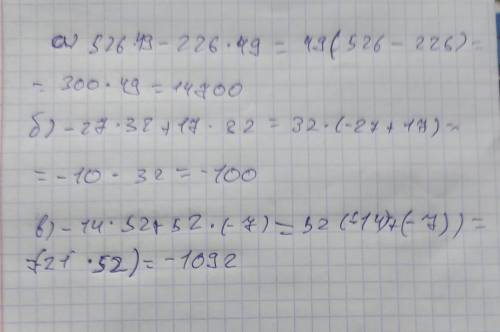 а) 526·49 - 226·49 = 49(526 - 226) =
= 300·49 = 14700
б) -27·32 + 17·32 = 32·(-27 + 17) =
= -10·32 = -100
в) -14·52 + 52·(-7) = 52(-14) + (-7)) =
(-21·52) = -1092